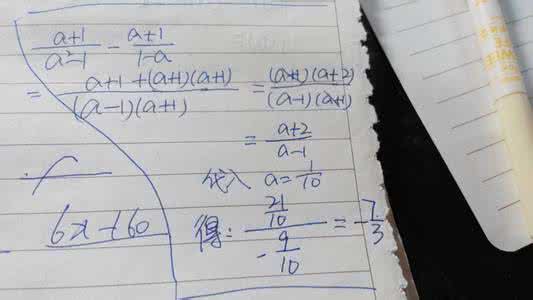 (a+1)/(a²-1) - (a+1)/(1-a)
= (a+1+(a+1)(a+1))/((a-1)(a+1)) = ((a+1)(a+2))/((a-1)(a+1))
= (a+2)/(a-1)
代入 a=1/10
得: (21/10)/(-9/10) = -7/3
6x+60